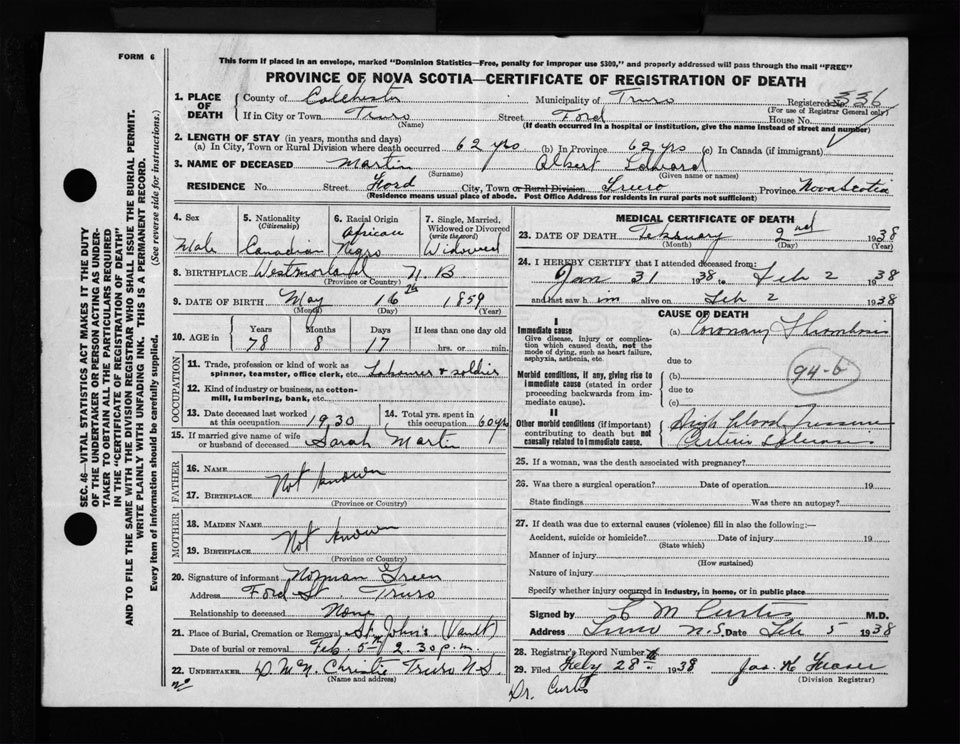 FORM 6
This form if placed in an envelope, marked "Dominion Statistics—Free, penalty for improper use $300," and properly addressed will pass through the mail "FREE"
PROVINCE OF NOVA SCOTIA—CERTIFICATE OF REGISTRATION OF DEATH
SEC. 46—VITAL STATISTICS ACT MAKES IT THE DUTY
OF THE UNDERTAKER OR PERSON ACTING AS UNDER-
TAKER TO OBTAIN ALL THE PARTICULARS REQUIRED
IN THE "CERTIFICATE OF REGISTRATION OF DEATH"
AND TO FILE THE SAME WITH THE DIVISION REGISTRAR WHO SHALL ISSUE THE BURIAL PERMIT.
WRITE PLAINLY WITH UNFADING INK. THIS IS A PERMANENT RECORD.
Every item of information should be carefully supplied. (See reverse side for instructions.)
1. PLACE OF DEATH County of Colchester Municipality of Truro Registered No. 336
(For use of Registrar General only)
If in City or Town Truro Street Ford House No.
(Name) (If death occurred in a hospital or institution, give the name instead of street and number)
2. LENGTH OF STAY (in years, months and days)
(a) In City, Town or Rural Division where death occurred 62 yrs (b) In Province 62 yrs (c) In Canada (if immigrant)
3. NAME OF DECEASED Martin Albert Edward
(Surname) (Given name or names)
RESIDENCE No. Street Ford City, Town or Rural Division Truro Province Nova Scotia
(Residence means usual place of abode. Post Office Address for residents in rural parts not sufficient)
4. Sex Male
5. Nationality (Citizenship) Canadian
6. Racial Origin African Negro
7. Single, Married, Widowed or Divorced (write the word) Widowed
8. BIRTHPLACE Westmorland N.B
(Province or Country)
9. DATE OF BIRTH May 16th 1859
(Month) (Day) (Year)
10. AGE in Years 78 Months 8 Days 17 If less than one day old hrs. or min.
OCCUPATION
11. Trade, profession or kind of work as spinner, teamster, office clerk, etc. Labourer & soldier
12. Kind of industry or business, as cotton-mill, lumbering, bank, etc.
13. Date deceased last worked at this occupation 1930
14. Total yrs. spent in this occupation 60 yrs
15. If married give name of wife or husband of deceased Sarah Martin
FATHER
16. NAME Not known
17. BIRTHPLACE
(Province or Country)
MOTHER
18. MAIDEN NAME Not known
19. BIRTHPLACE
(Province or Country)
20. Signature of informant Norman Green
Address Ford St. Truro
Relationship to deceased None
21. Place of Burial, Cremation or Removal St. John's (Vault)
Date of burial or removal Feb. 5th 2.30 p.m.
22. UNDERTAKER D. McN. Christie Truro N.S.
(Name and address)
MEDICAL CERTIFICATE OF DEATH
23. DATE OF DEATH February 2nd 1938
(Month) (Day)
24. I HEREBY CERTIFY that I attended deceased from:
Jan 31 1938 to Feb 2 1938
and last saw him alive on Feb 2 1938
CAUSE OF DEATH
I
Immediate cause (a) Coronary Thrombosis
Give disease, injury or complication which caused death, not the mode of dying, such as heart failure, asphyxia, asthenia, etc.
due to
94-b
Morbid conditions, if any, giving rise to immediate cause (stated in order proceeding backwards from immediate cause) (b)
due to
(c)
II
Other morbid conditions (if important) contributing to death but not causally related to immediate cause. High blood Pressure
25. If a woman, was the death associated with pregnancy?
26. Was there a surgical operation? Date of operation 19
State findings Was there an autopsy?
27. If death was due to external causes (violence) fill in also the following:—
Accident, suicide or homicide? Date of injury 19
(State which)
Manner of injury
(How sustained)
Nature of injury
Specify whether injury occurred in Industry, in home, or in public place
Signed by C M Curtis M.D.
Address Truro N.S. Date Feb 5 1938
28. Registrar's Record Number
29. Filed Feby 28th 1938 Jas. H Fraser
(Division Registrar)
Dr. Curtis